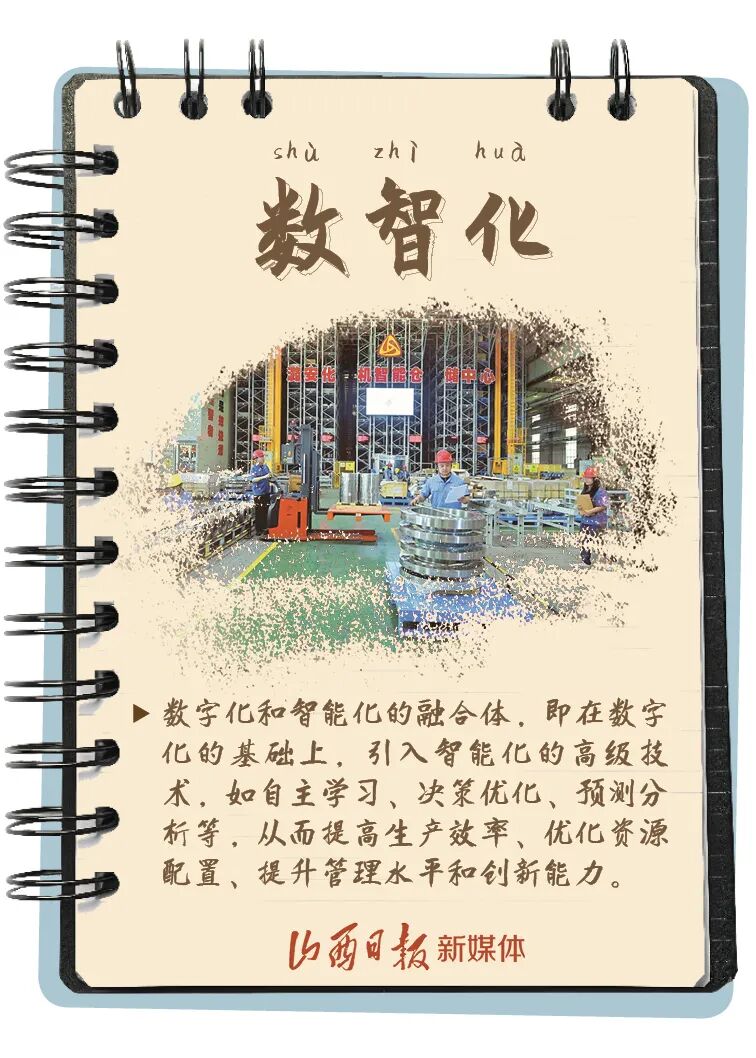 shù zhì huà
数智化
潞安化 机智能仓 储中心
数字化和智能化的融合体，即在数字
化的基础上，引入智能化的高级技
术，如自主学习、决策优化、预测分
析等，从而提高生产效率、优化资源
配置、提升管理水平和创新能力。
山西日报新媒体